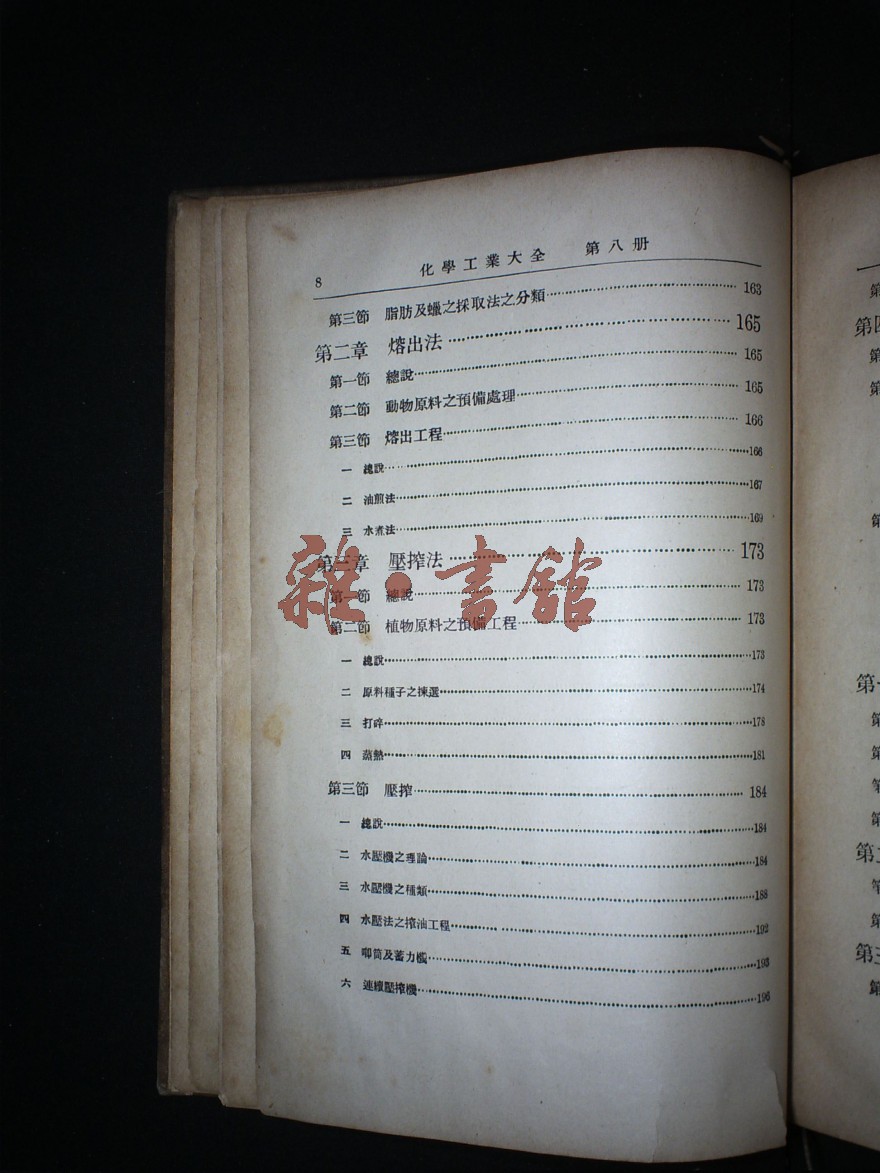 8 化學工業大全 第八册
第三節 脂肪及蠟之採取法之分類 163
第二章 熔出法 165
第一節 總說 165
第二節 動物原料之預備處理 165
第三節 熔出工程 166
一 總說 166
二 油煎法 167
三 水煮法 169
第三章 壓搾法 173
第一節 總說 173
第二節 植物原料之預備工程 173
一 總說 173
二 原料種子之揀選 174
三 打碎 178
四 蒸熱 181
第三節 壓搾 184
一 總說 184
二 水壓機之理論 184
三 水壓機之種類 188
四 水壓法之搾油工程 192
五 唧筒及蓄力機 195
六 連續壓搾機 196
雜·書館
第四
第一
第二
第三